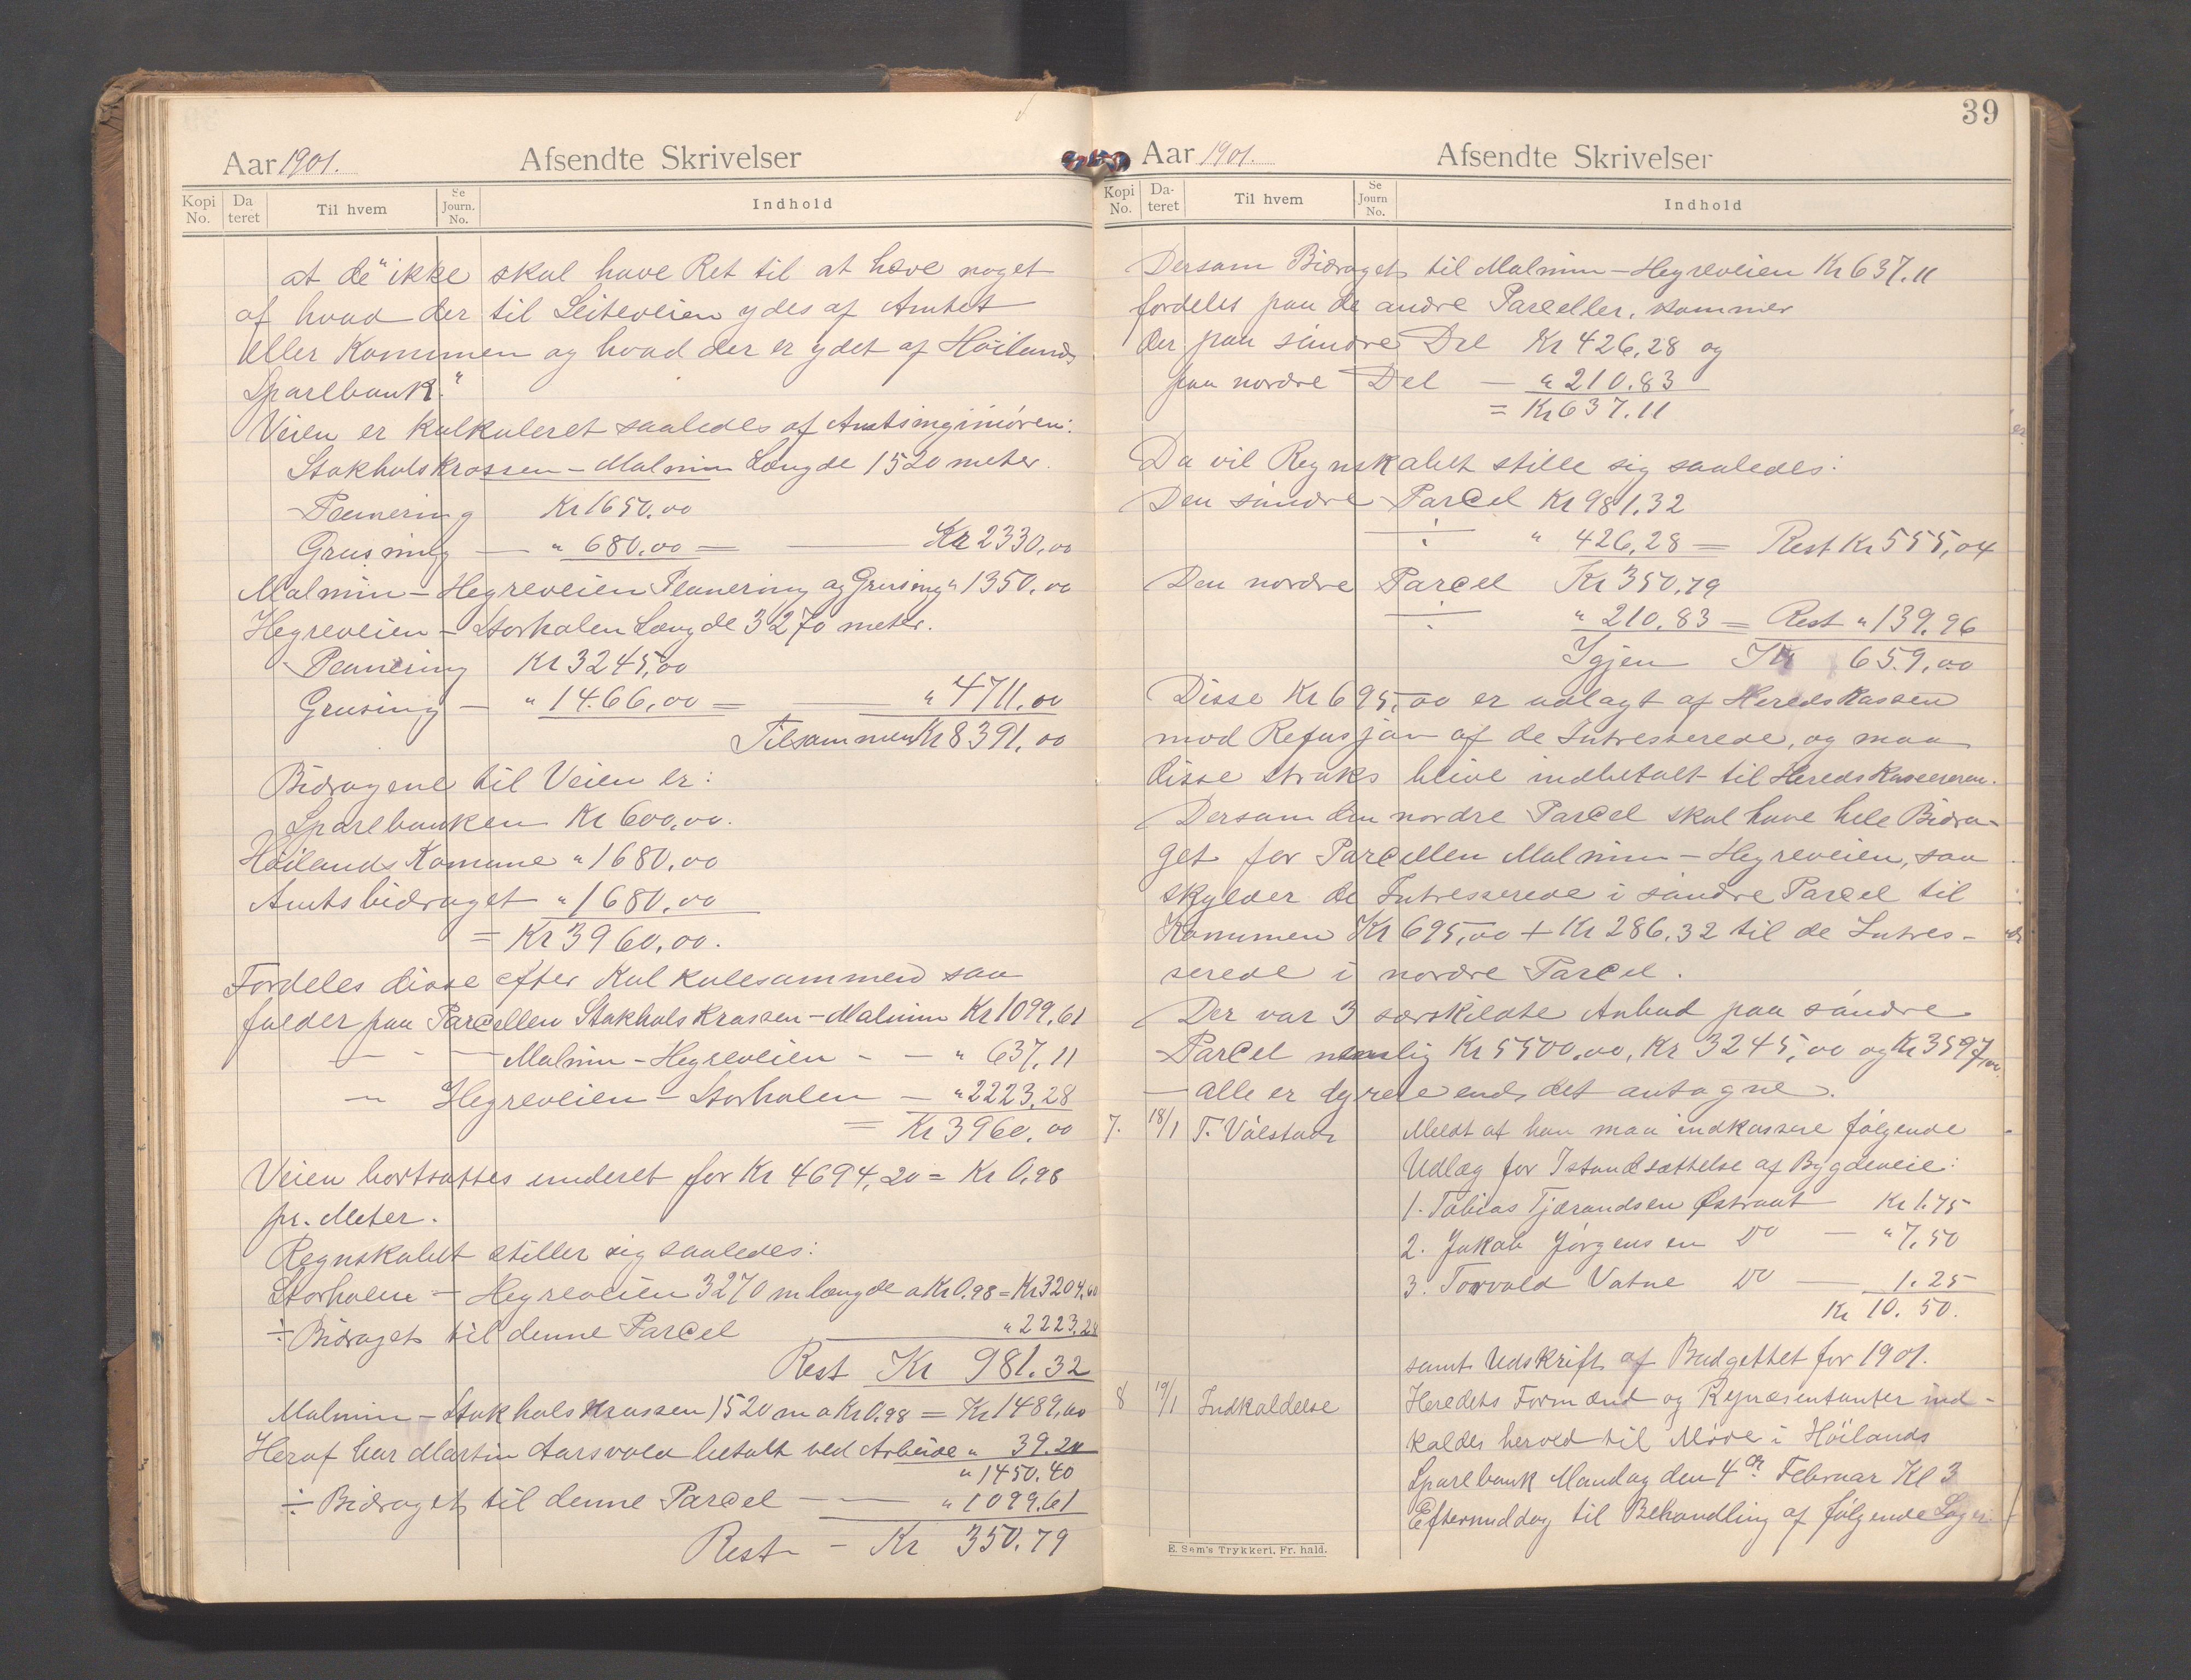 Aar 1901. Afsendte Skrivelser
Kopi No. Da teret Til hvem Se Journ. No. Indhold
at de "ikke skal have Ret til at hæve noget
af hvad der til Leiteveien ydes af Amtet
eller Kommunen og hvad der er ydet af Höilands
Sparebank."
Veien er kalkuleret saaledes af Amtsingeniøren:
Stokholskrossen – Malmin Længde 1520 meter.
Planering Kr 1650,00
Grusning — " 680,00 = — Kr 2330,00
Malmin – Hegreveien Planering og Grusing " 1350,00
Hegreveien – Storhalen Længde 3270 meter.
Planering Kr 3245,00
Grusing — " 1466,00 = — " 4711,00
Tilsammen Kr 8391,00
Bidragene til Veien er:
Sparebanken Kr 600,00.
Höilands Komune " 1680,00
Amtsbidraget " 1680,00
= Kr 3960,00.
Fordeles disse efter Kalkulesummen saa
falder paa Parcellen Stokholskrossen – Malmin Kr 1099,61
— " — Malmin – Hegreveien - — " 637,11
— Hegreveien – Storhalen — " 2223,28
= Kr 3960,00
Veien bortsattes underet for Kr 4694,20 = Kr 0,98
pr. Meter.
Regnskabet stiller sig saaledes:
Storhalen – Hegreveien 3270 m længde a Kr 0.98 = Kr 3204,60
÷ Bidraget til denne Parcel " 2223,28
Rest Kr 981.32
Malmin – Stokholskrossen 1520 m a Kr 0,98 = Kr 1489,60
Heraf har Martin Aarsvold betalt ved Arbeide " 39.20
" 1450.40
÷ Bidraget til denne Parcel — " 1099,61
Rest – Kr 350.79
39
Aar 1901. Afsendte Skrivelser
Kopi No. Da- teret Til hvem Se Journ No. Indhold
Dersom Bidraget til Malmin – Hegreveien Kr 637.11
fordeles paa de andre Parceller, kommer
der paa søndre Del Kr 426,28 og
paa nordre Del — " 210.83
= Kr 637.11
Da vil Regnskabet stille sig saaledes:
Den søndre Parcel Kr 981.32
÷ " 426,28 = Rest Kr 555,04
Den nordre Parcel Kr 350.79
÷ " 210.83 = Rest " 139.96
Igjen Kr 659,00
Disse Kr 695,00 er udlagt af Heredskassen
mod Refusjon af de Intresserede, og maa
disse straks blive indbetalt til Heredskassereren.
Dersom den nordre Parcel skal have hele Bidra-
get for Parcellen Malmin – Hegreveien, saa
skylder de Intresserede i søndre Parcel til
Kommunen Kr 695,00 + Kr 286.32 til de Intres-
serede i nordre Parcel.
Der var 3 særskildte Anbud paa søndre
Parcel nemlig Kr 5500,00, Kr 3245,00 og Kr 3597,00
— alle er dyrere end det antagne.
7. 18/1 T. Válstad Meldt at han maa indkassere følgende
Udlæg for Istandsættelse af Bygdeveie:
1. Tobias Tjærandsen Østraat Kr 1.75
2. Jakob Jørgensen Do — " 7.50
3. Torvald Vatne Do — 1.25
Kr 10.50.
samt Udskrift af Budgettet for 1901.
8 19/1 Indkaldelse Heredets Formænd og Repræsentanter ind-
kaldes herved til Møde i Höilands
Sparebank Mandag den 4de Februar Kl 3
Eftermiddag til Behandling af følgende Sager
E. Sem's Trykkeri, Fr. hald.